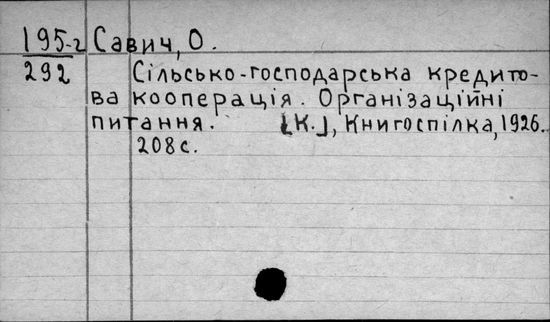 195-г Савич, О.
292 Сільсько-господарська кредито-
ва кооперація. Організаційні
питання. [К.], Книгоспілка, 1926.
208 с.